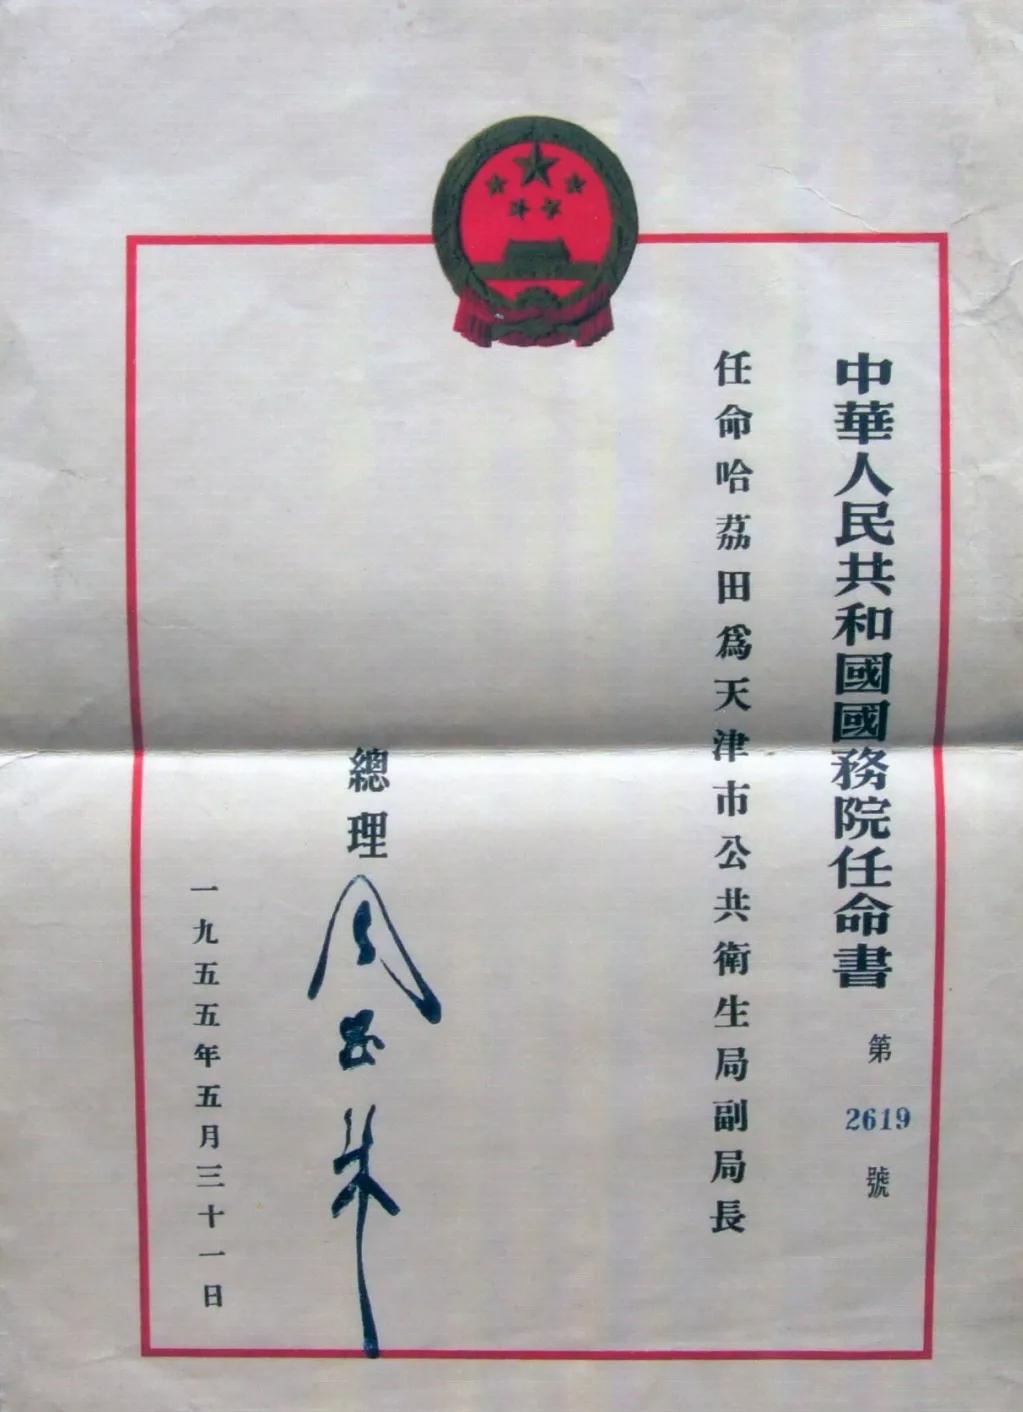 中華人民共和國國務院任命書
第
2619
號
任命哈荔田爲天津市公共衛生局副局長
總理
周恩來
一九五五年五月三十一日